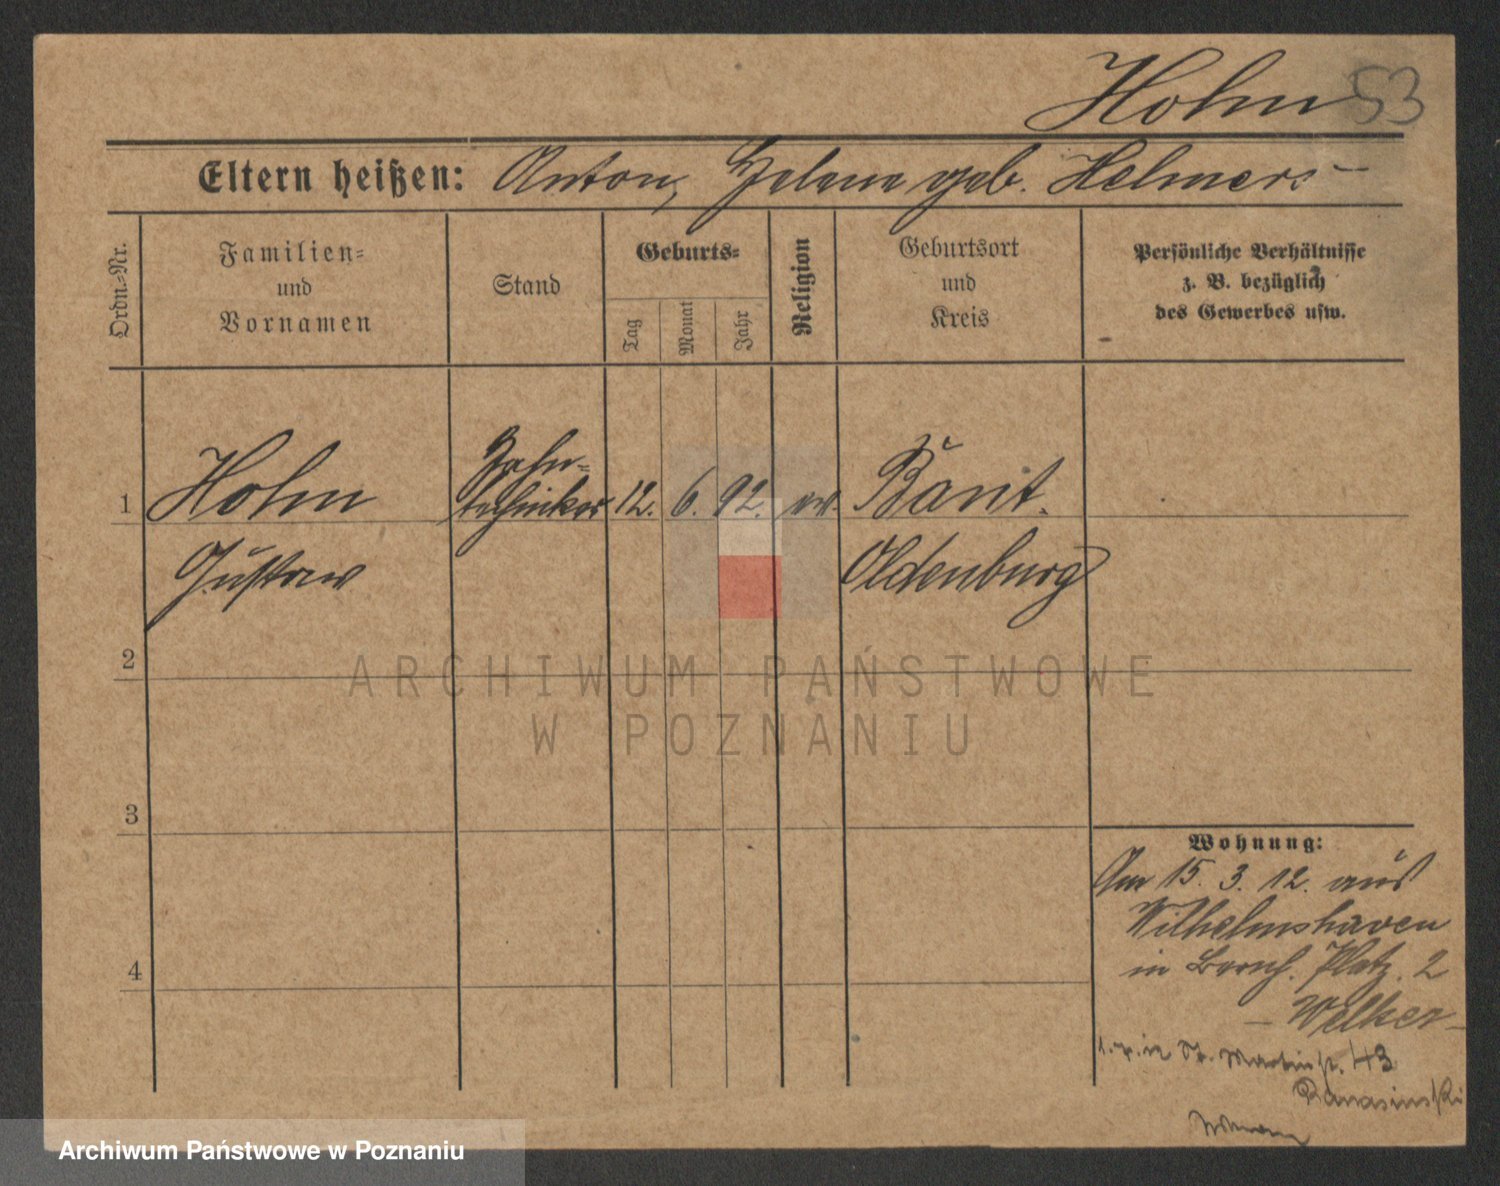 Hohn 53
Eltern heißen: Anton, Helene geb. Helmers
Ordn.-Nr.
Familien-
und
Vornamen
Stand
Geburts-
Tag
Monat
Jahr
Religion
Geburtsort
und
Kreis
Persönliche Verhältnisse
z. B. bezüglich
des Gewerbes usw.
1
Hohn
Gustav
Zahn-
techniker
12. 6. 92. ev.
Bant.
Oldenburg
2
ARCHIWUM PAŃSTWOWE
W POZNANIU
3
4
Wohnung:
Am 15. 3. 12. aus
Wilhelmshaven
in Bernh. Platz. 2
- Welker -
in St. Martinstr. 43
Banasinski
Archiwum Państwowe w Poznaniu